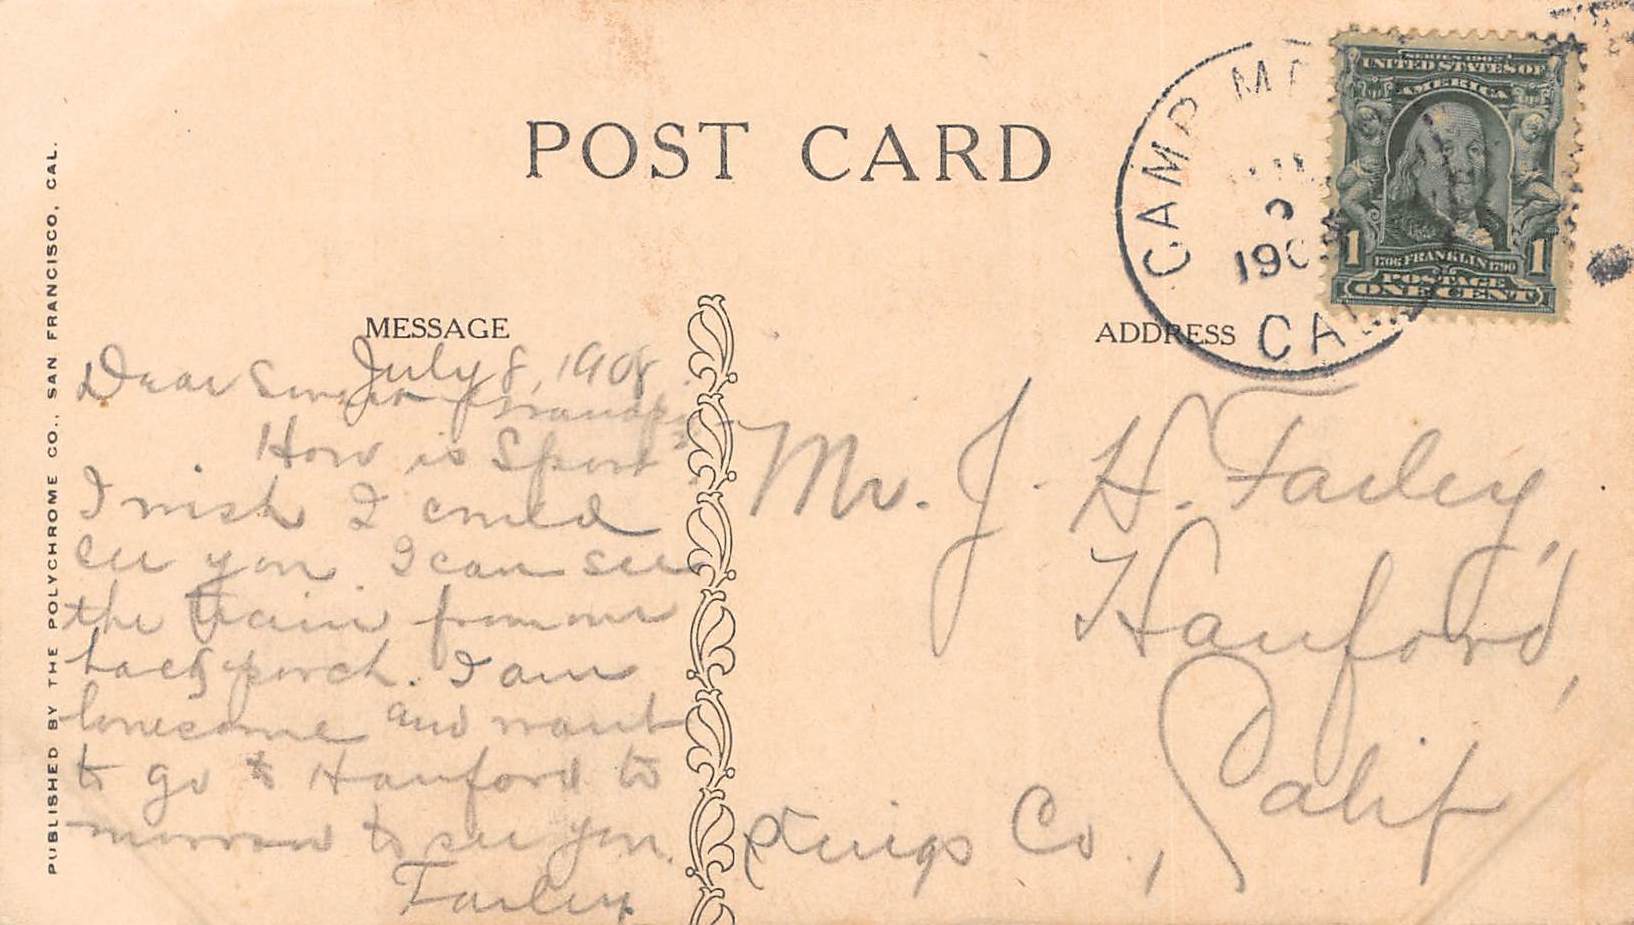 POST CARD
CAMP M
190
CAL.
SERIES 1902
UNITED STATES OF
AMERICA
1 1
1706 FRANKLIN 1790
POSTAGE
ONE CENT
PUBLISHED BY THE POLYCHROME CO., SAN FRANCISCO, CAL.
MESSAGE
July 8, 1908
Dear
How is Sport
I wish I could
see you. I can see
the train from our
back porch. I am
lonesome and want
to go to Hanford to
morrow to see you.
Farley
ADDRESS
Mr. J. H. Farley,
Hanford,
Calif
Kings Co.,